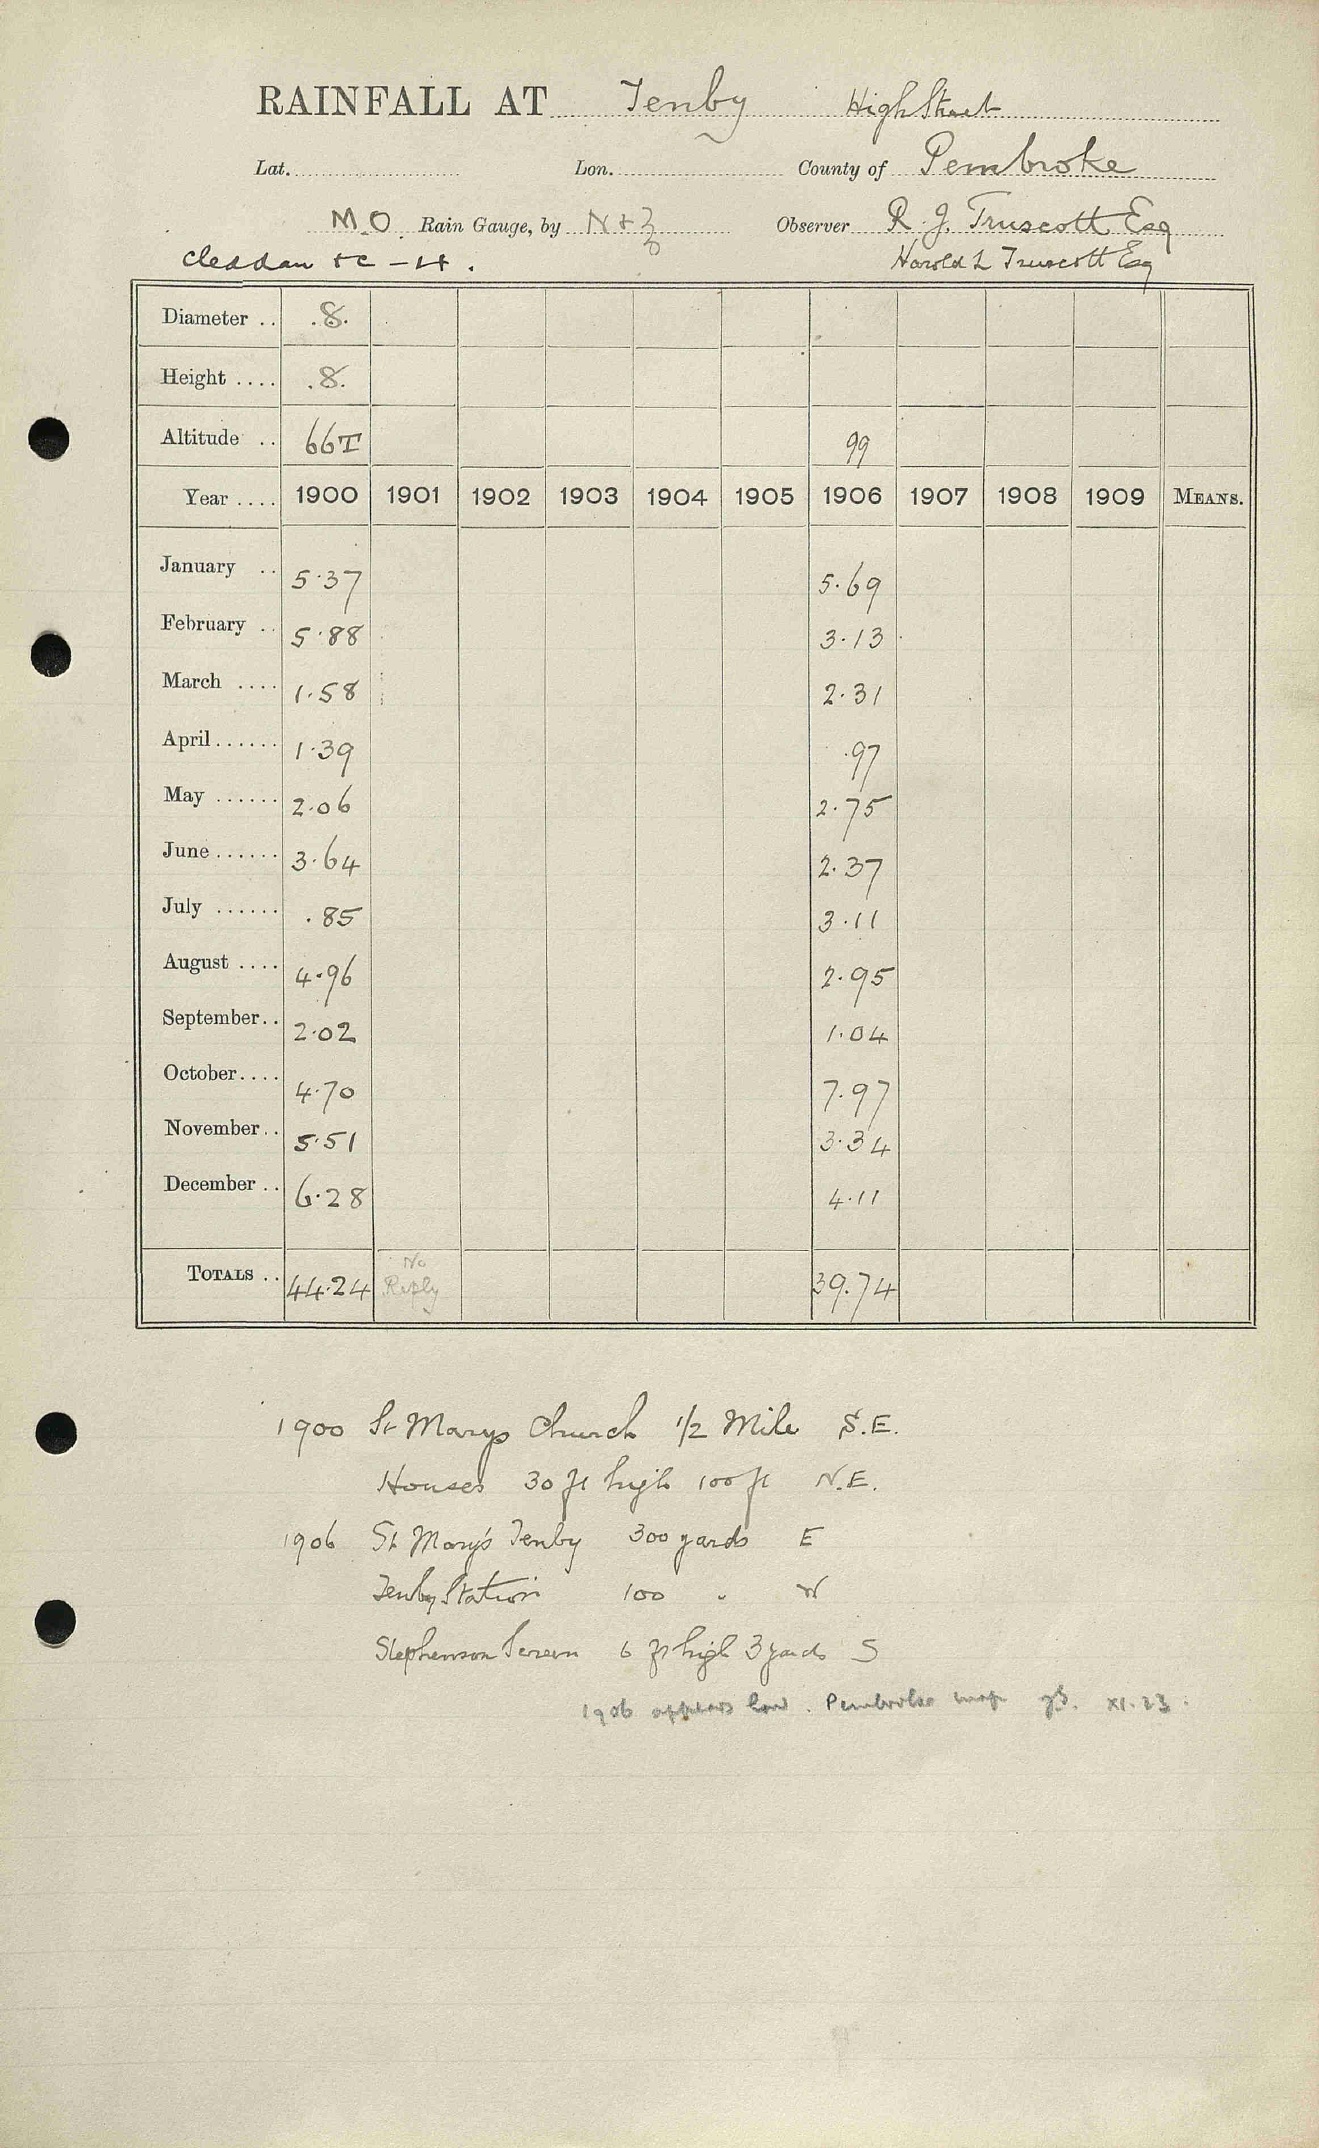 RAINFALL AT Tenby High Street
Lat. Lon. County of Pembroke
M.O. Rain Gauge, by N+Z Observer R. J. Truscott Esq
Cleddau &c - 14. Harold L Truscott Esq
Diameter .. .8.
Height .... .8.
Altitude .. 66T 99
Year .... 1900 1901 1902 1903 1904 1905 1906 1907 1908 1909 MEANS.
January .. 5.37 5.69
February .. 5.88 3.13
March .... 1.58 2.31
April ...... 1.39 .97
May ...... 2.06 2.75
June ...... 3.64 2.37
July ...... .85 3.11
August .... 4.96 2.95
September.. 2.02 1.04
October.... 4.70 7.97
November.. 5.51 3.34
December .. 6.28 4.11
TOTALS .. 44.24 No Reply 39.74
1900 St Marys Church 1/2 Mile S.E.
Houses 30 ft high 100 ft N.E.
1906 St Mary's Tenby 300 yards E
Tenby Station 100 " W
Stephenson Screen 6 ft high 3 yards S
1906 appears low. Pembroke map XI.23.